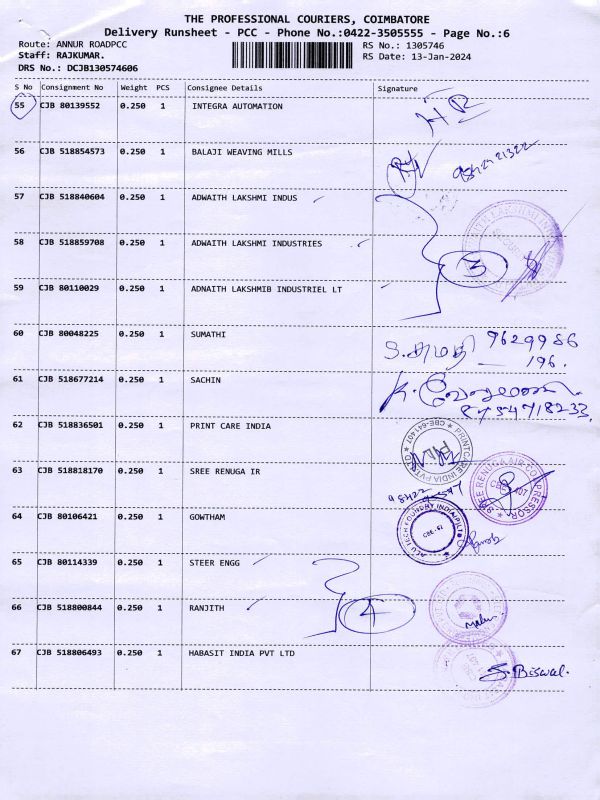 THE PROFESSIONAL COURIERS, COIMBATORE
Delivery Runsheet - PCC - Phone No.:0422-3505555 - Page No.:6
Route: ANNUR ROADPCC RS No.: 1305746
Staff: RAJKUMAR. RS Date: 13-Jan-2024
DRS No.: DCJB130574606
S No Consignment No Weight PCS Consignee Details Signature
55 CJB 80139552 0.250 1 INTEGRA AUTOMATION
56 CJB 518854573 0.250 1 BALAJI WEAVING MILLS
57 CJB 518840604 0.250 1 ADWAITH LAKSHMI INDUS
58 CJB 518859708 0.250 1 ADWAITH LAKSHMI INDUSTRIES
3
59 CJB 80110029 0.250 1 ADNAITH LAKSHMIB INDUSTRIEL LT
60 CJB 80048225 0.250 1 SUMATHI
சுமதி 9629986
196.
61 CJB 518677214 0.250 1 SACHIN
62 CJB 518836501 0.250 1 PRINT CARE INDIA
PRINTCARE INDIA PVT LTD CBE-641407
63 CJB 518818170 0.250 1 SREE RENUGA IR
SREE RENUGA AIR COMPRESSOR
64 CJB 80106421 0.250 1 GOWTHAM
65 CJB 80114339 0.250 1 STEER ENGG
66 CJB 518800844 0.250 1 RANJITH
4
67 CJB 518806493 0.250 1 HABASIT INDIA PVT LTD
S. Biswal.